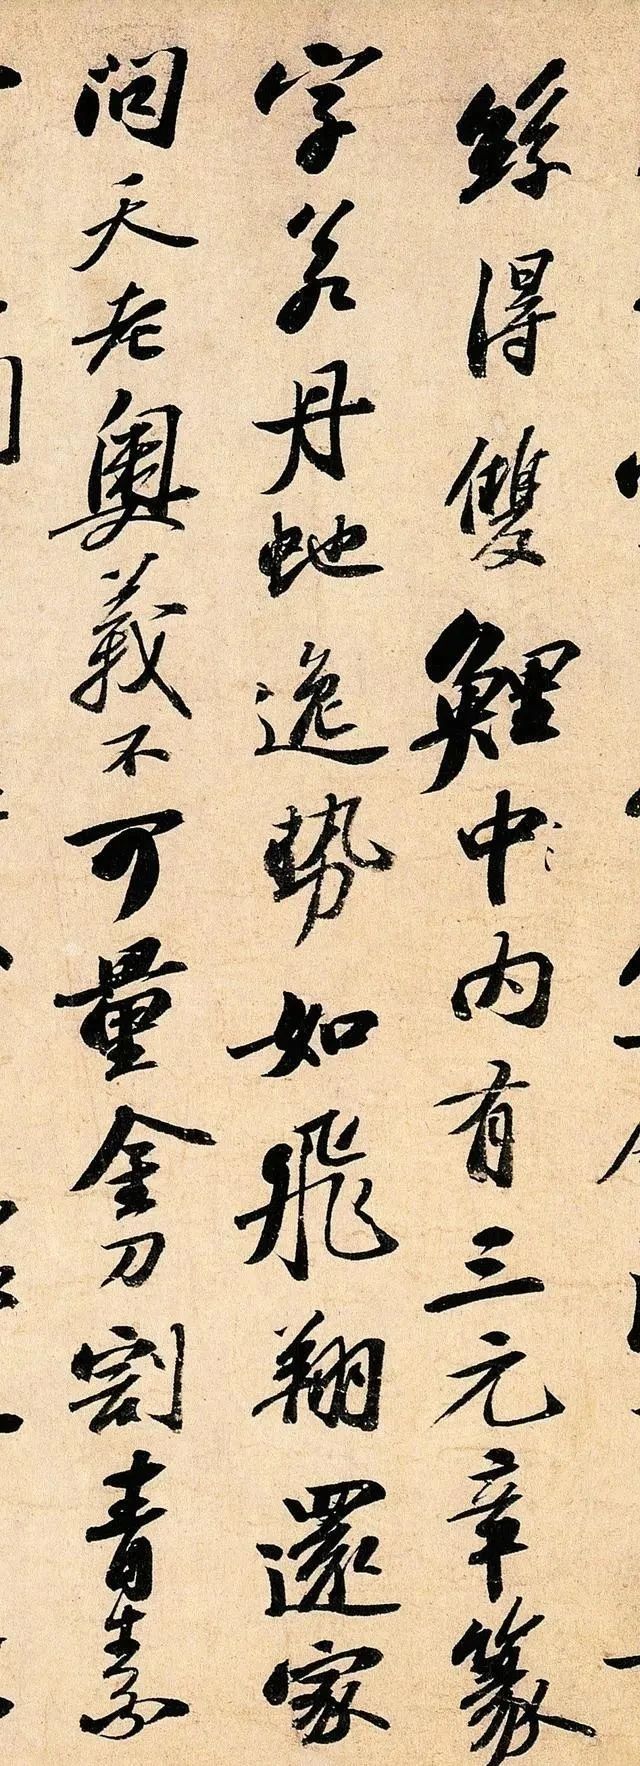 絲得雙鯉中内有三元章篆
字若丹虵逸勢如飛翔還家
問天老奧義不可量金刀割青素